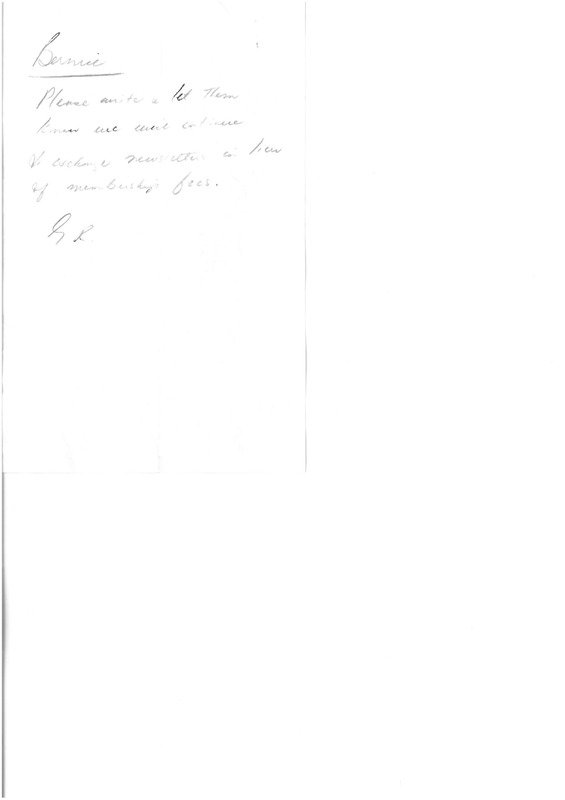 Bernie
Please write & let them
know we will continue
to exchange newsletters in lieu
of membership fees.
G R.